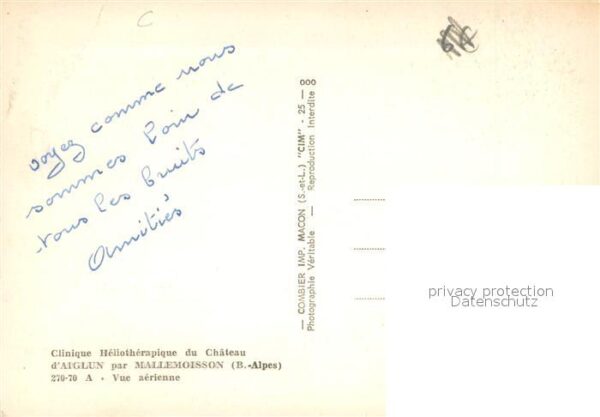 C
voyez comme nous
sommes loin de
tous les bruits
Amitiés
Clinique Héliothérapique du Château
d'AIGLUN par MALLEMOISSON (B.-Alpes)
270-70 A - Vue aérienne
— COMBIER IMP. MACON (S.-et-L.) "CIM" - 25 — 000
Photographie Véritable — Reproduction Interdite
privacy protection
Datenschutz